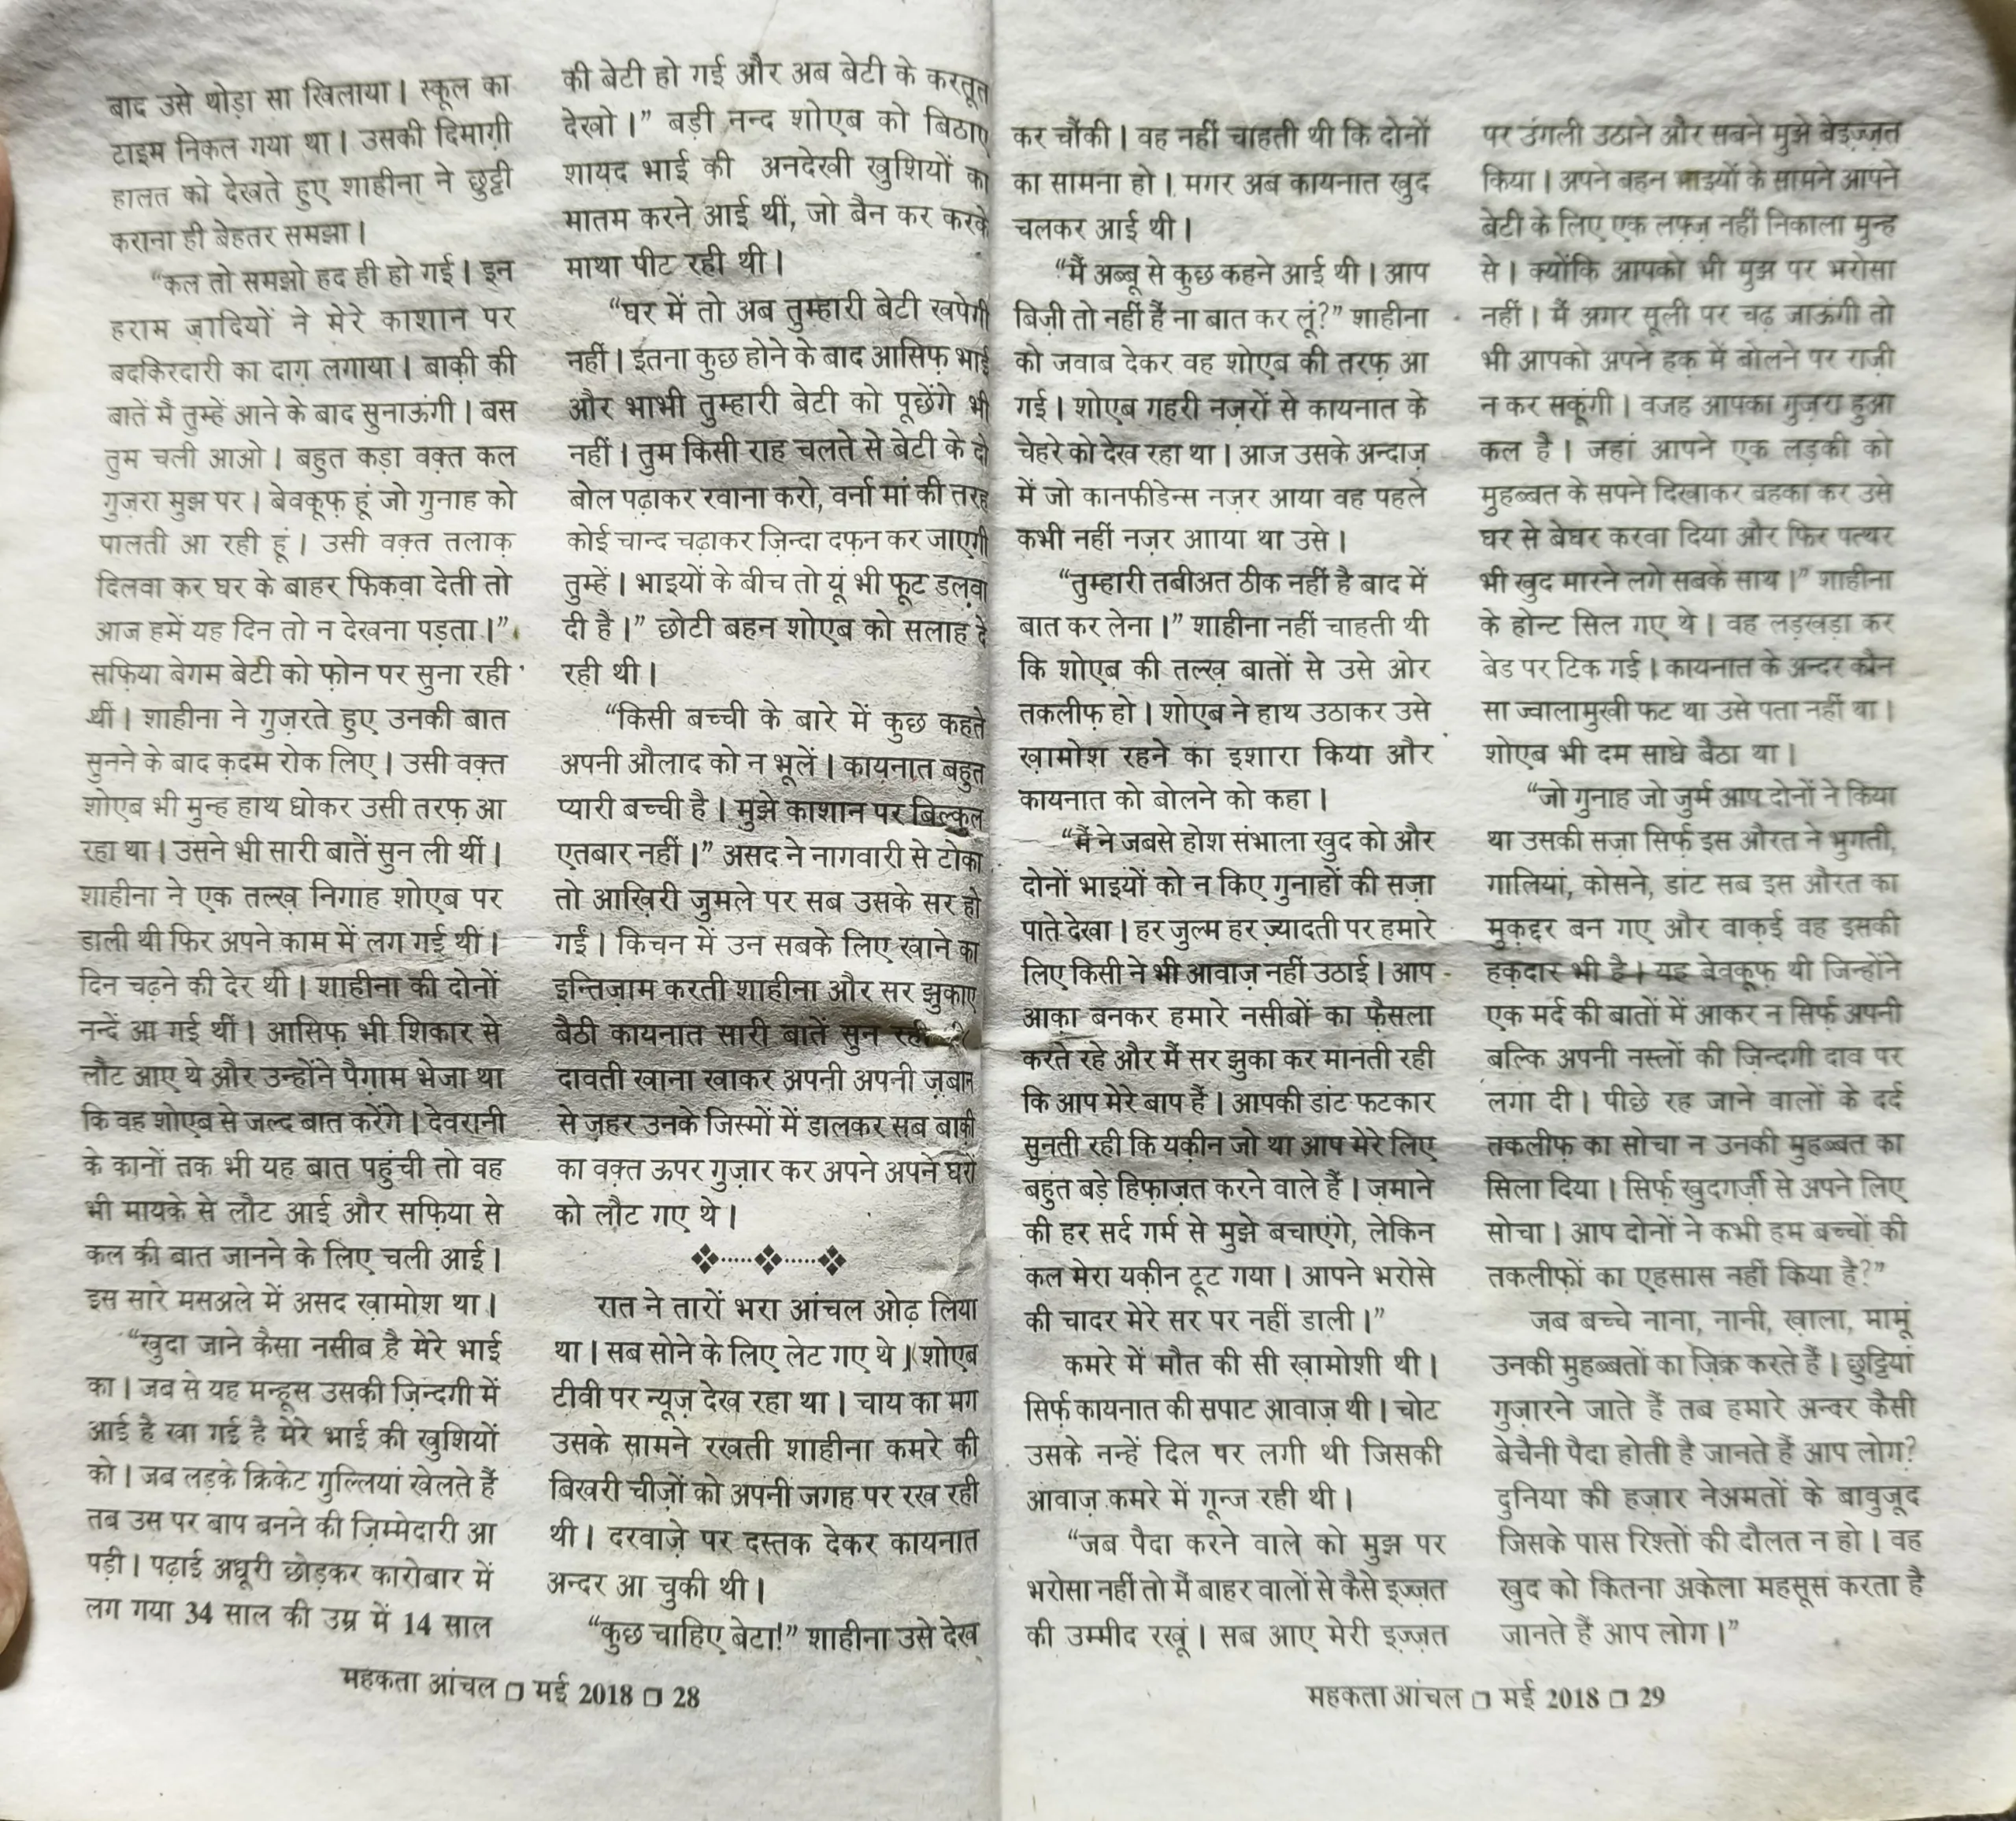 बाद उसे थोड़ा सा खिलाया। स्कूल का
टाइम निकल गया था। उसकी दिमाग़ी
हालत को देखते हुए शाहीना ने छुट्टी
कराना ही बेहतर समझा।
“कल तो समझो हद ही हो गई। इन
हराम ज़ादियों ने मेरे काशान पर
बदकिरदारी का दाग़ लगाया। बाक़ी की
बातें मैं तुम्हें आने के बाद सुनाऊंगी। बस
तुम चली आओ। बहुत कड़ा वक़्त कल
गुज़रा मुझ पर। बेवकूफ़ हूं जो गुनाह को
पालती आ रही हूं। उसी वक़्त तलाक़
दिलवा कर घर के बाहर फिकवा देती तो
आज हमें यह दिन तो न देखना पड़ता।”
सफ़िया बेगम बेटी को फ़ोन पर सुना रही
थीं। शाहीना ने गुज़रते हुए उनकी बात
सुनने के बाद क़दम रोक लिए। उसी वक़्त
शोएब भी मुन्ह हाथ धोकर उसी तरफ़ आ
रहा था। उसने भी सारी बातें सुन ली थीं।
शाहीना ने एक तल्ख़ निगाह शोएब पर
डाली थी फिर अपने काम में लग गई थीं।
दिन चढ़ने की देर थी। शाहीना की दोनों
नन्दें आ गई थीं। आसिफ़ भी शिकार से
लौट आए थे और उन्होंने पैग़ाम भेजा था
कि वह शोएब से जल्द बात करेंगे। देवरानी
के कानों तक भी यह बात पहुंची तो वह
भी मायके से लौट आई और सफ़िया से
कल की बात जानने के लिए चली आई।
इस सारे मसअले में असद ख़ामोश था।
“खुदा जाने कैसा नसीब है मेरे भाई
का। जब से यह मन्हूस उसकी ज़िन्दगी में
आई है खा गई है मेरे भाई की खुशियों
को। जब लड़के क्रिकेट गुल्लियां खेलते हैं
तब उस पर बाप बनने की ज़िम्मेदारी आ
पड़ी। पढ़ाई अधूरी छोड़कर कारोबार में
लग गया 34 साल की उम्र में 14 साल
की बेटी हो गई और अब बेटी के करतूत
देखो।” बड़ी नन्द शोएब को बिठाए
शायद भाई की अनदेखी खुशियों का
मातम करने आई थीं, जो बैन कर करके
माथा पीट रही थी।
“घर में तो अब तुम्हारी बेटी खपेगी
नहीं। इतना कुछ होने के बाद आसिफ़ भाई
और भाभी तुम्हारी बेटी को पूछेंगे भी
नहीं। तुम किसी राह चलते से बेटी के दो
बोल पढ़ाकर रवाना करो, वर्ना मां की तरह
कोई चान्द चढ़ाकर ज़िन्दा दफ़न कर जाएगी
तुम्हें। भाइयों के बीच तो यूं भी फूट डलवा
दी है।” छोटी बहन शोएब को सलाह दे
रही थी।
“किसी बच्ची के बारे में कुछ कहते
अपनी औलाद को न भूलें। कायनात बहुत
प्यारी बच्ची है। मुझे काशान पर बिल्कुल
एतबार नहीं।” असद ने नागवारी से टोका
तो आख़िरी जुमले पर सब उसके सर हो
गईं। किचन में उन सबके लिए खाने का
इन्तिज़ाम करती शाहीना और सर झुकाए
बैठी कायनात सारी बातें सुन रही थी
दावती खाना खाकर अपनी अपनी ज़बान
से ज़हर उनके जिस्मों में डालकर सब बाक़ी
का वक़्त ऊपर गुज़ार कर अपने अपने घरों
को लौट गए थे।
❖.....❖.....❖
रात ने तारों भरा आंचल ओढ़ लिया
था। सब सोने के लिए लेट गए थे। शोएब
टीवी पर न्यूज़ देख रहा था। चाय का मग
उसके सामने रखती शाहीना कमरे की
बिखरी चीज़ों को अपनी जगह पर रख रही
थी। दरवाज़े पर दस्तक देकर कायनात
अन्दर आ चुकी थी।
“कुछ चाहिए बेटा!” शाहीना उसे देख
महकता आंचल □ मई 2018 □ 28
कर चौंकी। वह नहीं चाहती थी कि दोनों
का सामना हो। मगर अब कायनात खुद
चलकर आई थी।
“मैं अब्बू से कुछ कहने आई थी। आप
बिज़ी तो नहीं हैं ना बात कर लूं?” शाहीना
को जवाब देकर वह शोएब की तरफ़ आ
गई। शोएब गहरी नज़रों से कायनात के
चेहरे को देख रहा था। आज उसके अन्दाज़
में जो कानफीडेन्स नज़र आया वह पहले
कभी नहीं नज़र आाया था उसे।
“तुम्हारी तबीअत ठीक नहीं है बाद में
बात कर लेना।” शाहीना नहीं चाहती थी
कि शोएब की तल्ख़ बातों से उसे ओर
तकलीफ़ हो। शोएब ने हाथ उठाकर उसे
ख़ामोश रहने का इशारा किया और
कायनात को बोलने को कहा।
“मैं ने जबसे होश संभाला खुद को और
दोनों भाइयों को न किए गुनाहों की सज़ा
पाते देखा। हर जुल्म हर ज़्यादती पर हमारे
लिए किसी ने भी आवाज़ नहीं उठाई। आप
आक़ा बनकर हमारे नसीबों का फ़ैसला
करते रहे और मैं सर झुका कर मानती रही
कि आप मेरे बाप हैं। आपकी डांट फटकार
सुनती रही कि यक़ीन जो था आप मेरे लिए
बहुत बड़े हिफ़ाज़त करने वाले हैं। ज़माने
की हर सर्द गर्म से मुझे बचाएंगे, लेकिन
कल मेरा यक़ीन टूट गया। आपने भरोसे
की चादर मेरे सर पर नहीं डाली।”
कमरे में मौत की सी ख़ामोशी थी।
सिर्फ़ कायनात की सपाट आवाज़ थी। चोट
उसके नन्हें दिल पर लगी थी जिसकी
आवाज़ कमरे में गून्ज रही थी।
“जब पैदा करने वाले को मुझ पर
भरोसा नहीं तो मैं बाहर वालों से कैसे इज़्ज़त
की उम्मीद रखूं। सब आए मेरी इज़्ज़त
पर उंगली उठाने और सबने मुझे बेइज़्ज़त
किया। अपने बहन भाइयों के सामने आपने
बेटी के लिए एक लफ़्ज़ नहीं निकाला मुन्ह
से। क्योंकि आपको भी मुझ पर भरोसा
नहीं। मैं अगर सूली पर चढ़ जाऊंगी तो
भी आपको अपने हक़ में बोलने पर राज़ी
न कर सकूंगी। वजह आपका गुज़रा हुआ
कल है। जहां आपने एक लड़की को
मुहब्बत के सपने दिखाकर बहका कर उसे
घर से बेघर करवा दिया और फिर पत्थर
भी खुद मारने लगे सबके साथ।” शाहीना
के होन्ट सिल गए थे। वह लड़खड़ा कर
बेड पर टिक गई। कायनात के अन्दर कौन
सा ज्वालामुखी फट था उसे पता नहीं था।
शोएब भी दम साधे बैठा था।
“जो गुनाह जो जुर्म आप दोनों ने किया
था उसकी सज़ा सिर्फ़ इस औरत ने भुगती,
गालियां, कोसने, डांट सब इस औरत का
मुक़द्दर बन गए और वाक़ई वह इसकी
हक़दार भी है। यह बेवकूफ़ थी जिन्होंने
एक मर्द की बातों में आकर न सिर्फ़ अपनी
बल्कि अपनी नस्लों की ज़िन्दगी दाव पर
लगा दी। पीछे रह जाने वालों के दर्द
तकलीफ़ का सोचा न उनकी मुहब्बत का
सिला दिया। सिर्फ़ खुदगर्ज़ी से अपने लिए
सोचा। आप दोनों ने कभी हम बच्चों की
तकलीफ़ों का एहसास नहीं किया है?”
जब बच्चे नाना, नानी, ख़ाला, मामूं
उनकी मुहब्बतों का ज़िक्र करते हैं। छुट्टियां
गुज़ारने जाते हैं तब हमारे अन्दर कैसी
बेचैनी पैदा होती है जानते हैं आप लोग?
दुनिया की हज़ार नेअमतों के बावुजूद
जिसके पास रिश्तों की दौलत न हो। वह
खुद को कितना अकेला महसूस करता है
जानते हैं आप लोग।”
महकता आंचल □ मई 2018 □ 29